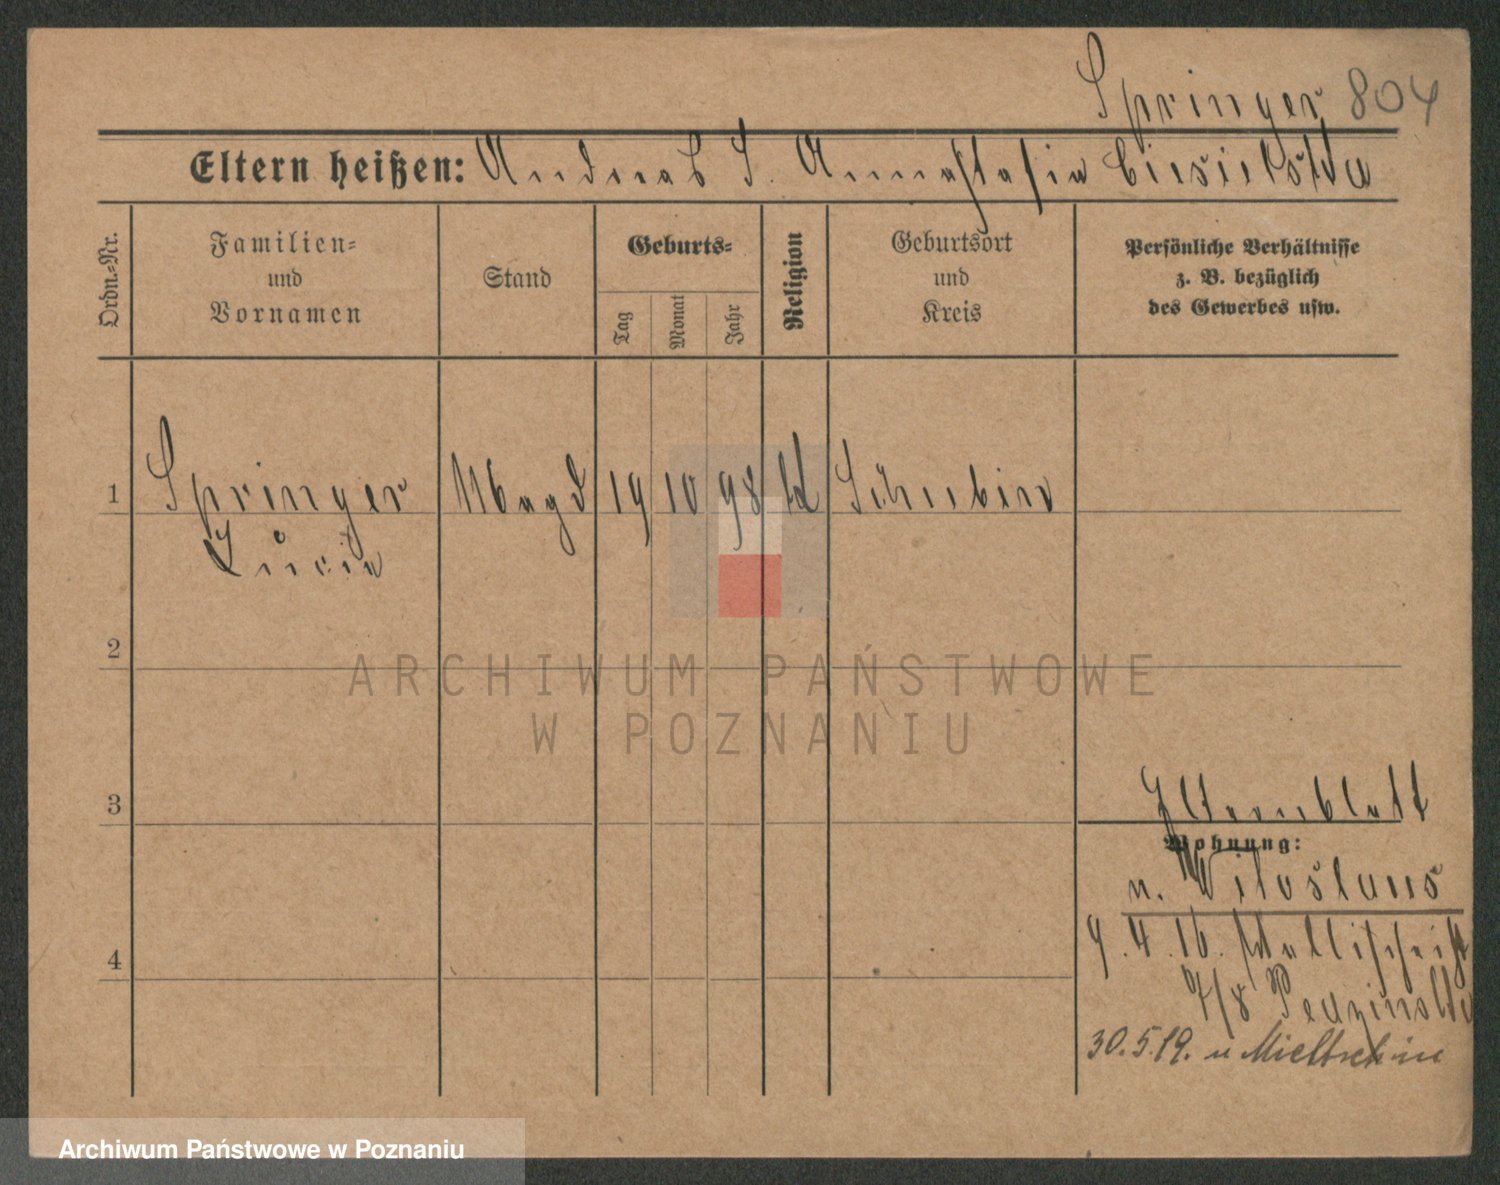 Springer 804
Eltern heißen: Andreas S. Annastasia Ciesielska
Ordn.=Nr.
Familien=
und
Vornamen
Stand
Geburts=
Tag
Monat
Jahr
Religion
Geburtsort
und
Kreis
Persönliche Verhältnisse
z. B. bezüglich
des Gewerbes usw.
1
Springer
Lucia
Magd
19
10
98
kl
Schubin
2
3
4
Elternblatt
Wohnung:
n. Witoslaus
9.4.16. Wallischei
7/8
30.5.19. n Mieltschin
ARCHIWUM PAŃSTWOWE
W POZNANIU
Archiwum Państwowe w Poznaniu